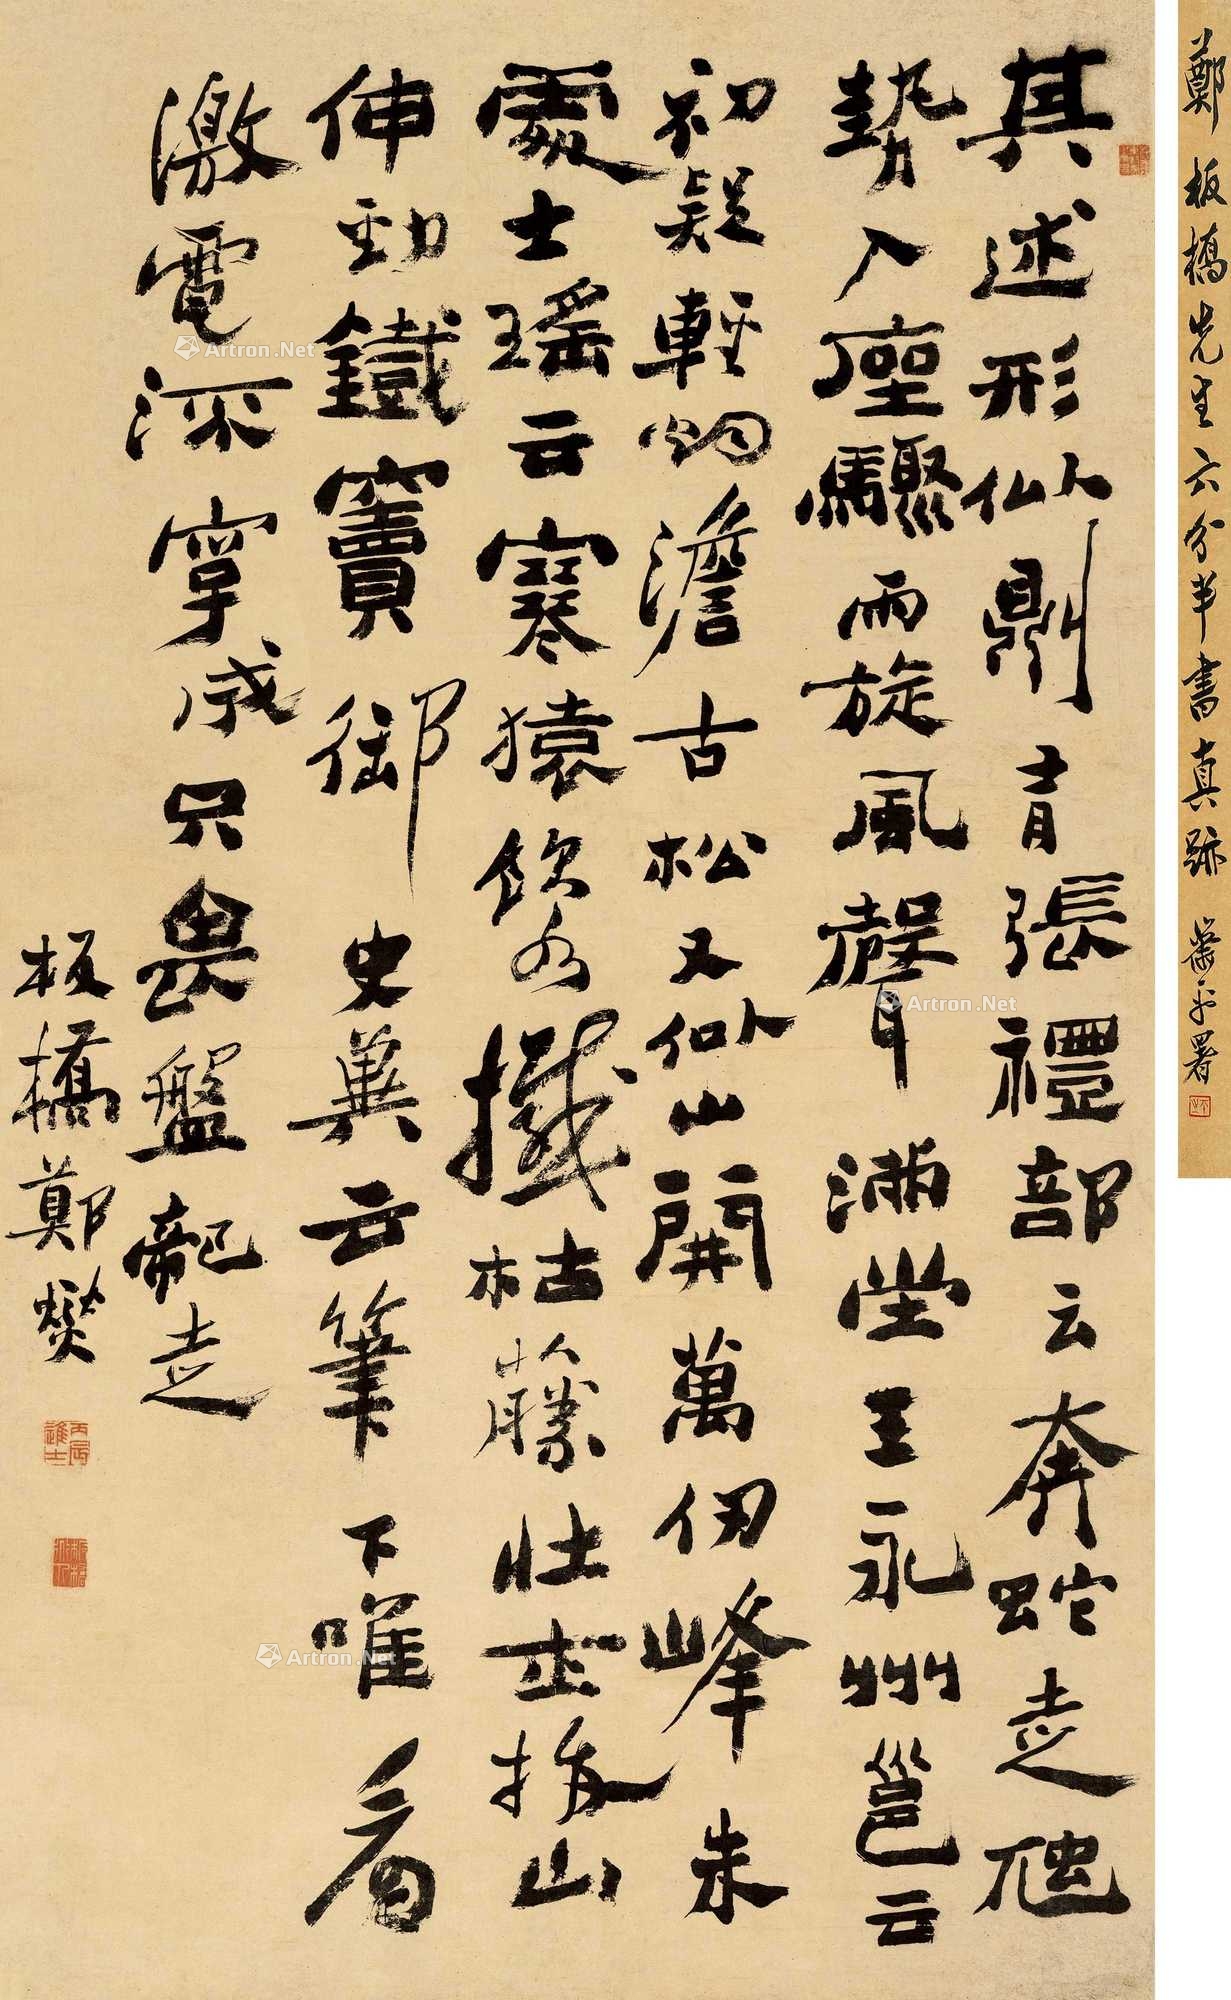 鄭板橋先生六分半書真跡 蕭平署
其述形似則有張禮部云奔蛇走虺
勢入座驟雨旋風聲滿堂王永州邕云
初疑輕烟澹古松又似山開萬仞峰朱
處士瑤云寒猿飲水撼枯藤壯士拔山
伸勁鐵竇御史冀云筆下唯看
激電流字成只畏盤龍走
板橋鄭燮
丙辰進士
Artron.Net
Artron.Net
Artron.Net